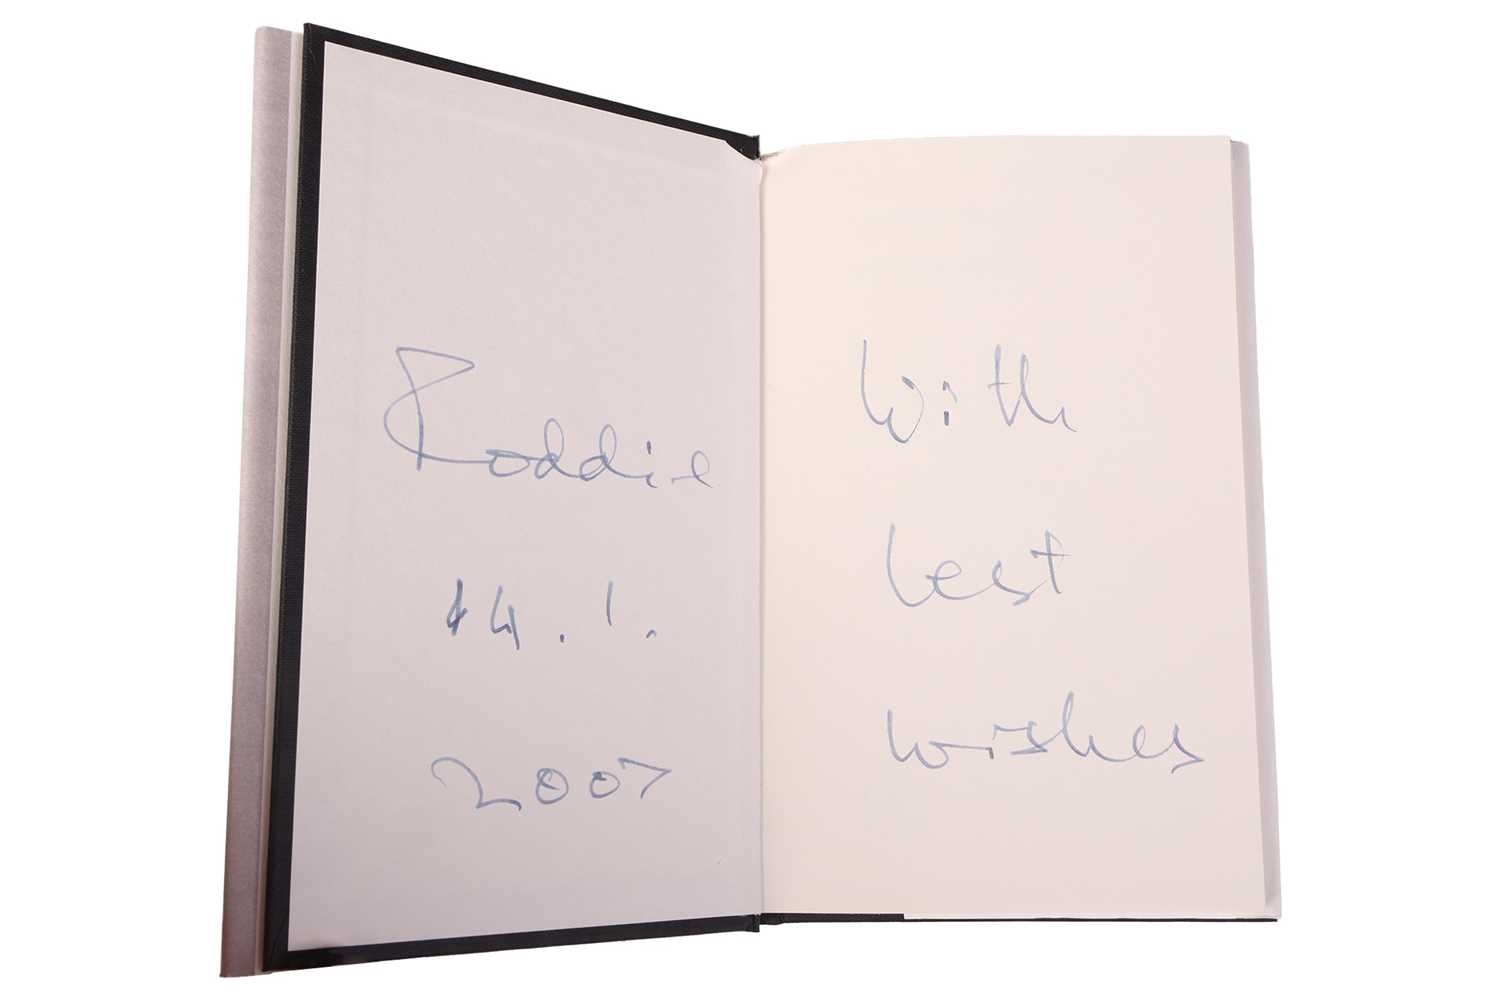 Roddie
14.1.
2007
With
best
wishes